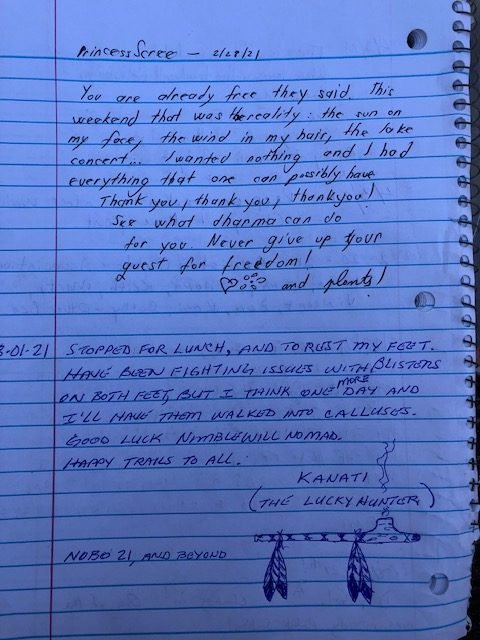 Princess Scree - 2/28/21
You are already free they said This
weekend that was the reality: the sun on
my face, the wind in my hair, the lake
concert... I wanted nothing and I had
everything that one can possibly have
Thank you, thank you, thank you!
See what dharma can do
for you. Never give up your
quest for freedom!
and plants!
3-01-21 STOPPED FOR LUNCH, AND TO REST MY FEET.
HAVE BEEN FIGHTING ISSUES WITH BLISTERS
ON BOTH FEET, BUT I THINK ONE MORE DAY AND
I'LL HAVE THEM WALKED INTO CALLUSES.
GOOD LUCK NIMBLEWILL NOMAD.
HAPPY TRAILS TO ALL.
KANATI
(THE LUCKY HUNTER)
NOBO 21, AND BEYOND